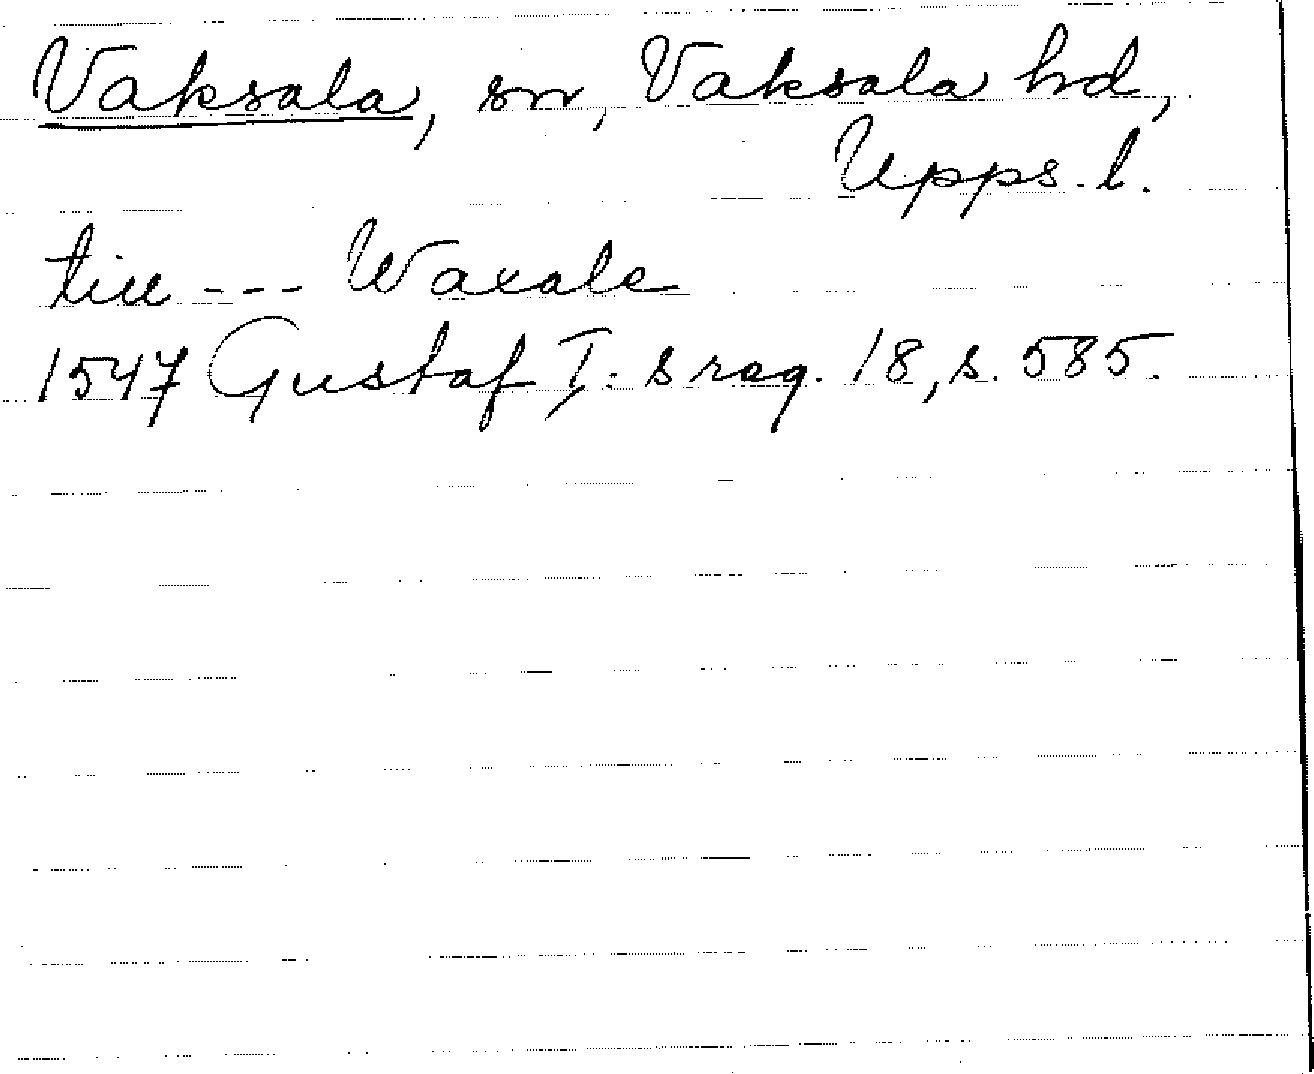 Vaksala, sn, Vaksala hd,
Upps. l.
till --- Waxale
1547 Gustaf I:s reg. 18, s. 585.